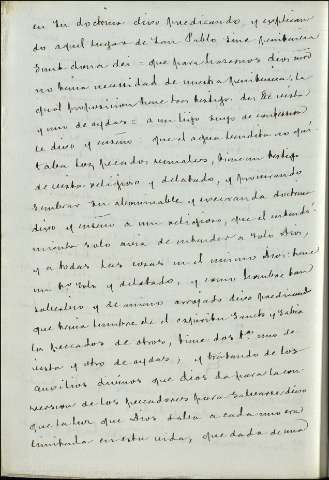 en su doctrina dixo predicando, y explican
do aquel lugar de San Pablo sine penitencia
sunt dona dei = que para traernos dios no
tenia necesidad de nuestra penitencia, la
qual proposicion tiene tres testigos de vista
y uno de oydas = a un hijo suyo de confesion
le dixo y enseño que el agua bendita no qui
taba los pecados veniales, tiene un testigo
de vista religioso y delatado, y procurando
sembrar su abominable y doctrina
dixo y enseño a un religioso, que el entendi
miento solo avia de entender a solo Dios,
y a todas las cosas en el mismo Dios: tiene
un tº solo y delatado, y como hombre tan
y de animo arrojado dixo predicando
que tenia lumbre de el espiritu Santo y sabia
los peccados de otros, tiene dos tºs uno de
vista y otro de oydas; y tratando de los
auxilios divinos que dios da para la con
version de los peccadores para salvarse, dixo
que la luz que Dios daba a cada uno era
limitada en esta vida, que dada de una